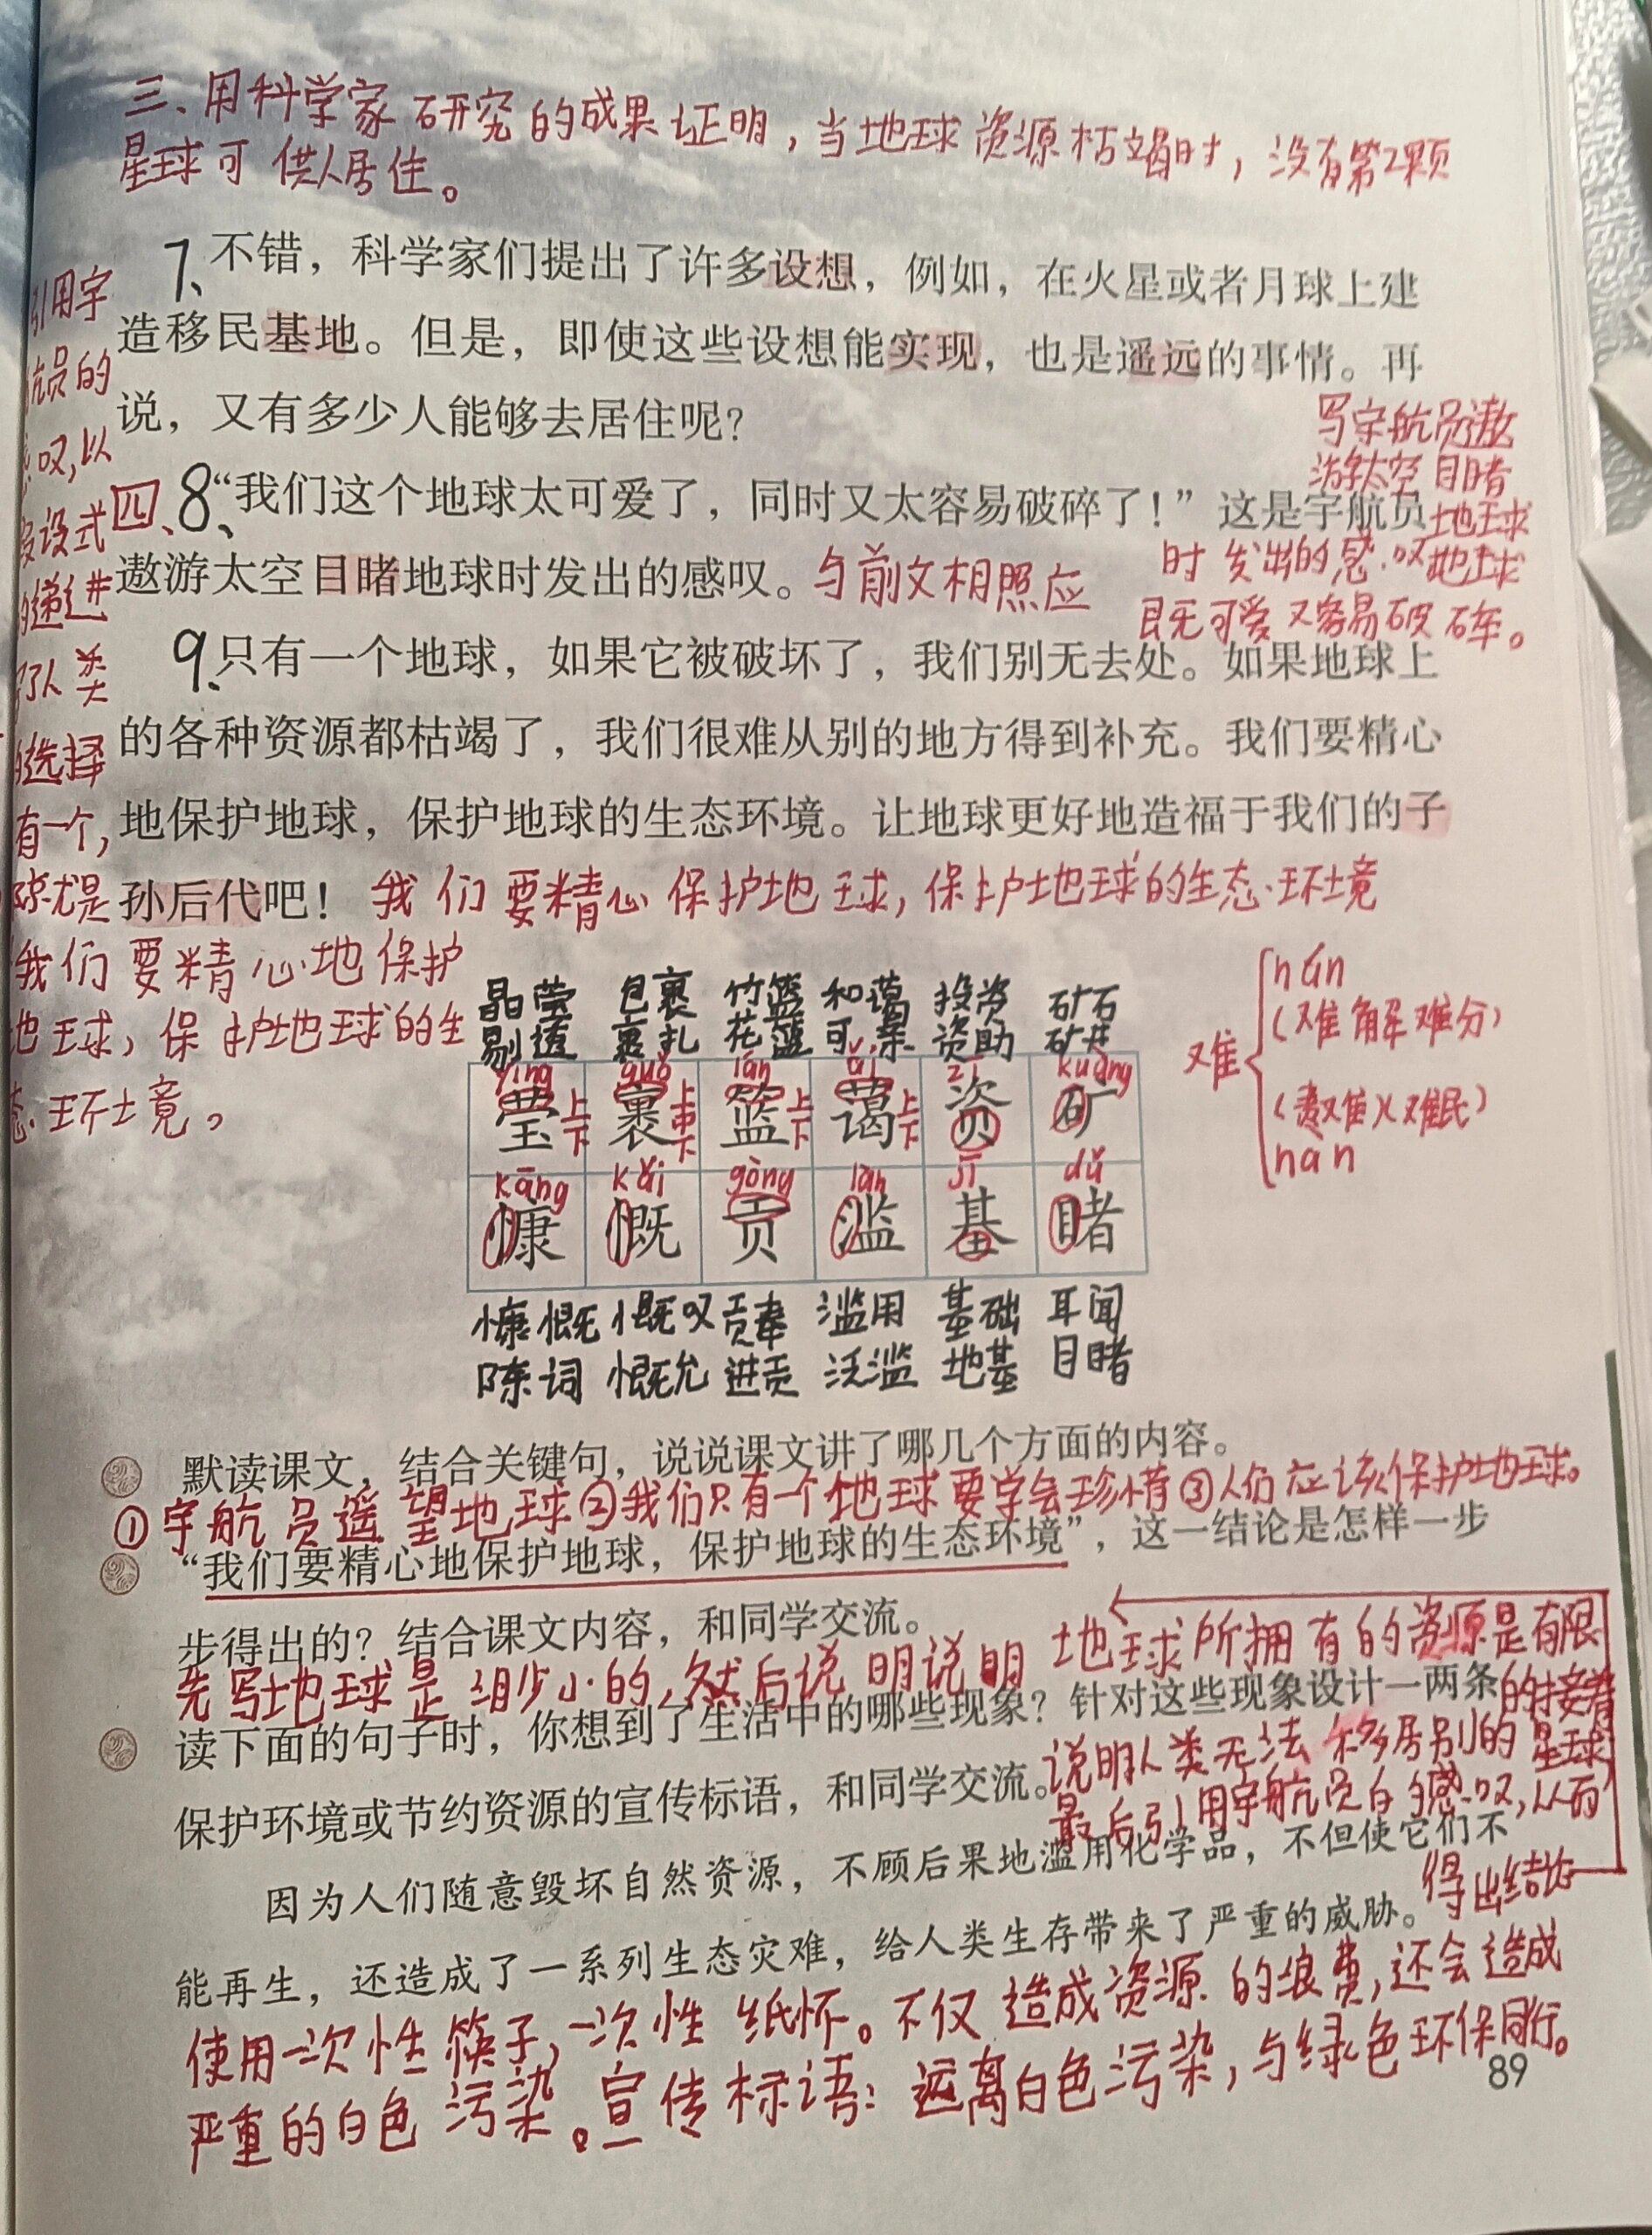 三、用科学家研究的成果证明，当地球资源枯竭时，没有第2颗
星球可供人居住。
7、不错，科学家们提出了许多设想，例如，在火星或者月球上建
造移民基地。但是，即使这些设想能实现，也是遥远的事情。再
说，又有多少人能够去居住呢？
引用宇
航员的
叹，以
设式
的递进
了人类
的选择
有一个，
尤是
我们要精心地保护
地球，保护地球的生
态环境。
写宇航员遨
游太空目睹
地球
时发出的感叹地球
既可爱又容易破碎。
四、8、“我们这个地球太可爱了，同时又太容易破碎了！”这是宇航员
遨游太空目睹地球时发出的感叹。与前文相照应
9、只有一个地球，如果它被破坏了，我们别无去处。如果地球上
的各种资源都枯竭了，我们很难从别的地方得到补充。我们要精心
地保护地球，保护地球的生态环境。让地球更好地造福于我们的子
孙后代吧！我们要精心保护地球，保护地球的生态环境
晶莹 包裹 竹篮 和蔼 投资 矿石
剔透 裹扎 花篮 可亲 资助 矿井
yíng guǒ lán ǎi zī kuàng
莹上下 裹上中下 篮上下 蔼上下 资 矿
kāng kǎi gòng làn jī dǔ
慷 慨 贡 滥 基 睹
慷慨 慨叹 贡奉 滥用 基础 耳闻
陈词 慨允 进贡 泛滥 地基 目睹
nán
（难解难分）
难
（难民）
nàn
默读课文，结合关键句，说说课文讲了哪几个方面的内容。
①宇航员遥望地球②我们只有一个地球要学会珍惜③人们应该保护地球。
“我们要精心地保护地球，保护地球的生态环境”，这一结论是怎样一步
步得出的？结合课文内容，和同学交流。
先写地球是渺小的，然后说明说明地球所拥有的资源是有限
的接着
读下面的句子时，你想到了生活中的哪些现象？针对这些现象设计一两条
说明人类无法移居别的星球
保护环境或节约资源的宣传标语，和同学交流。
最后引用宇航员的感叹，从而
得出结论
因为人们随意毁坏自然资源，不顾后果地滥用化学品，不但使它们不
能再生，还造成了一系列生态灾难，给人类生存带来了严重的威胁。
使用一次性筷子，一次性纸怀。不仅造成资源的浪费，还会造成
严重的白色污染。宣传标语：远离白色污染，与绿色环保同行。
89